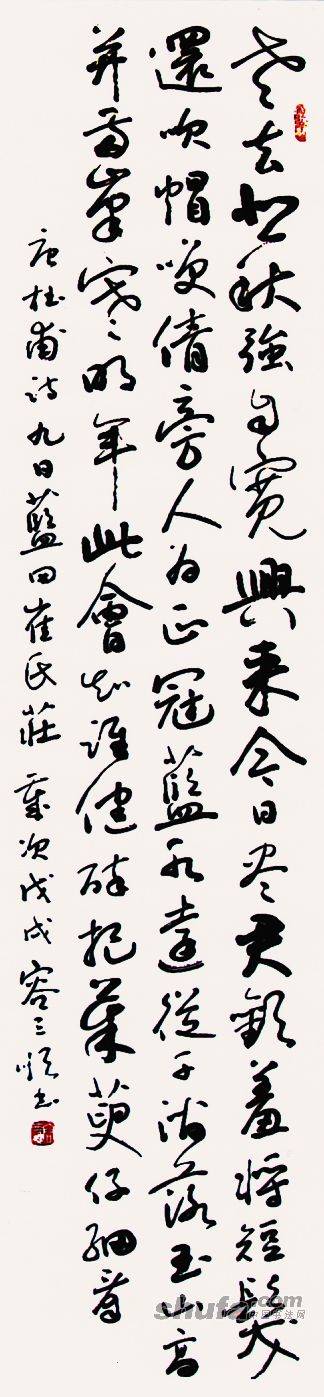 老去悲秋強自寬興来今日尽君歡羞將短髮
還吹帽笑倩旁人为正冠藍水遠從千澗落玉山高
并两峯寒明年此會知誰健醉把茱萸仔細看
唐杜甫詩九日藍田崔氏莊歲次戊戌容三順书
shufa.com
中国书法网